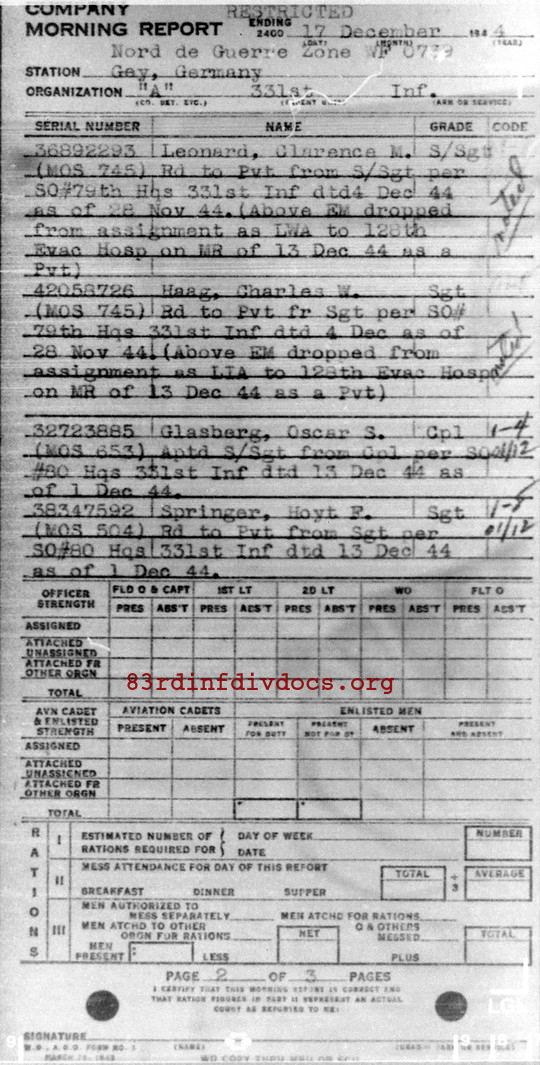 COMPANY RESTRICTED
MORNING REPORT ENDING 2400 17 December 1944
(DAY) (MONTH) (YEAR)
Nord de Guerre Zone WF 0739
STATION Gey, Germany
ORGANIZATION "A" 331st Inf.
(CO. DET. ETC.) (PARENT UNIT) (ARM OR SERVICE)
SERIAL NUMBER NAME GRADE CODE
36892293 Leonard, Clarence M. S/Sgt
(MOS 745) Rd to Pvt from S/Sgt per
SO#79th Hqs 331st Inf dtd4 Dec 44
as of 28 Nov 44.(Above EM dropped
from assignment as LWA to 128th
Evac Hosp on MR of 13 Dec 44 as a
Pvt)
noted
42058726 Haag, Charles W. Sgt
(MOS 745) Rd to Pvt fr Sgt per SO#
79th Hqs 331st Inf dtd 4 Dec as of
28 Nov 44.(Above EM dropped from
assignment as LIA to 128th Evac Hosp
on MR of 13 Dec 44 as a Pvt)
noted
32723885 Glasberg, Oscar S. Cpl 1-4
(MOS 653) Aptd S/Sgt from Cpl per SO 01/12
#80 Hqs 331st Inf dtd 13 Dec 44 as
of 1 Dec 44.
38347592 Springer, Hoyt F. Sgt 1-5
(MOS 504) Rd to Pvt from Sgt per 01/12
SO#80 Hqs 331st Inf dtd 13 Dec 44
as of 1 Dec 44.
OFFICER STRENGTH FLD O & CAPT 1ST LT 2D LT WO FLT O
PRES ABS'T PRES ABS'T PRES ABS'T PRES ABS'T PRES ABS'T
ASSIGNED
ATTACHED UNASSIGNED
ATTACHED FR OTHER ORGN
TOTAL
83rdinfdivdocs.org
AVN CADET & ENLISTED STRENGTH AVIATION CADETS ENLISTED MEN
PRESENT ABSENT PRESENT FOR DUTY PRESENT NOT FOR DY ABSENT PRESENT AND ABSENT
ASSIGNED
ATTACHED UNASSIGNED
ATTACHED FR OTHER ORGN
TOTAL
RATIONS
I ESTIMATED NUMBER OF RATIONS REQUIRED FOR { DAY OF WEEK NUMBER
DATE
II MESS ATTENDANCE FOR DAY OF THIS REPORT TOTAL ÷ 3 AVERAGE
BREAKFAST DINNER SUPPER
III MEN AUTHORIZED TO MESS SEPARATELY MEN ATCHD FOR RATIONS
MEN ATCHD TO OTHER ORGN FOR RATIONS NET O & OTHERS MESSED TOTAL
MEN PRESENT LESS PLUS
PAGE 2 OF 3 PAGES
I CERTIFY THAT THIS MORNING REPORT IS CORRECT AND
THAT RATION FIGURES IN PART II REPRESENT AN ACTUAL
COUNT AS REPORTED TO ME:
SIGNATURE
W.D., A.G.O. FORM NO. 1 (NAME)
MARCH